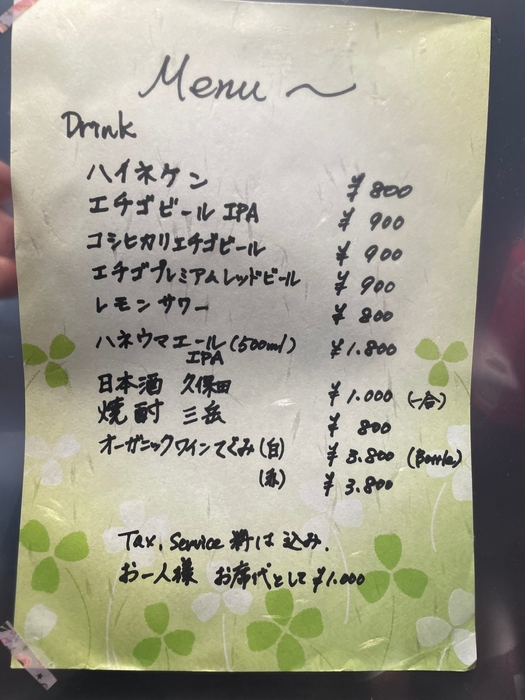 Menu ~
Drink
ハイネケン ¥800
エチゴビール IPA ¥900
コシヒカリエチゴビール ¥900
エチゴプレミアムレッドビール ¥900
レモンサワー ¥800
ハネウマエール(500ml) ¥1.800
IPA
日本酒 久保田 ¥1.000 (一合)
焼酎 三岳 ¥800
オーガニックワインてぐみ(白) ¥3.800 (Bottle)
(赤) ¥3.800
Tax, Service 料は込み.
お一人様 お席代として¥1.000